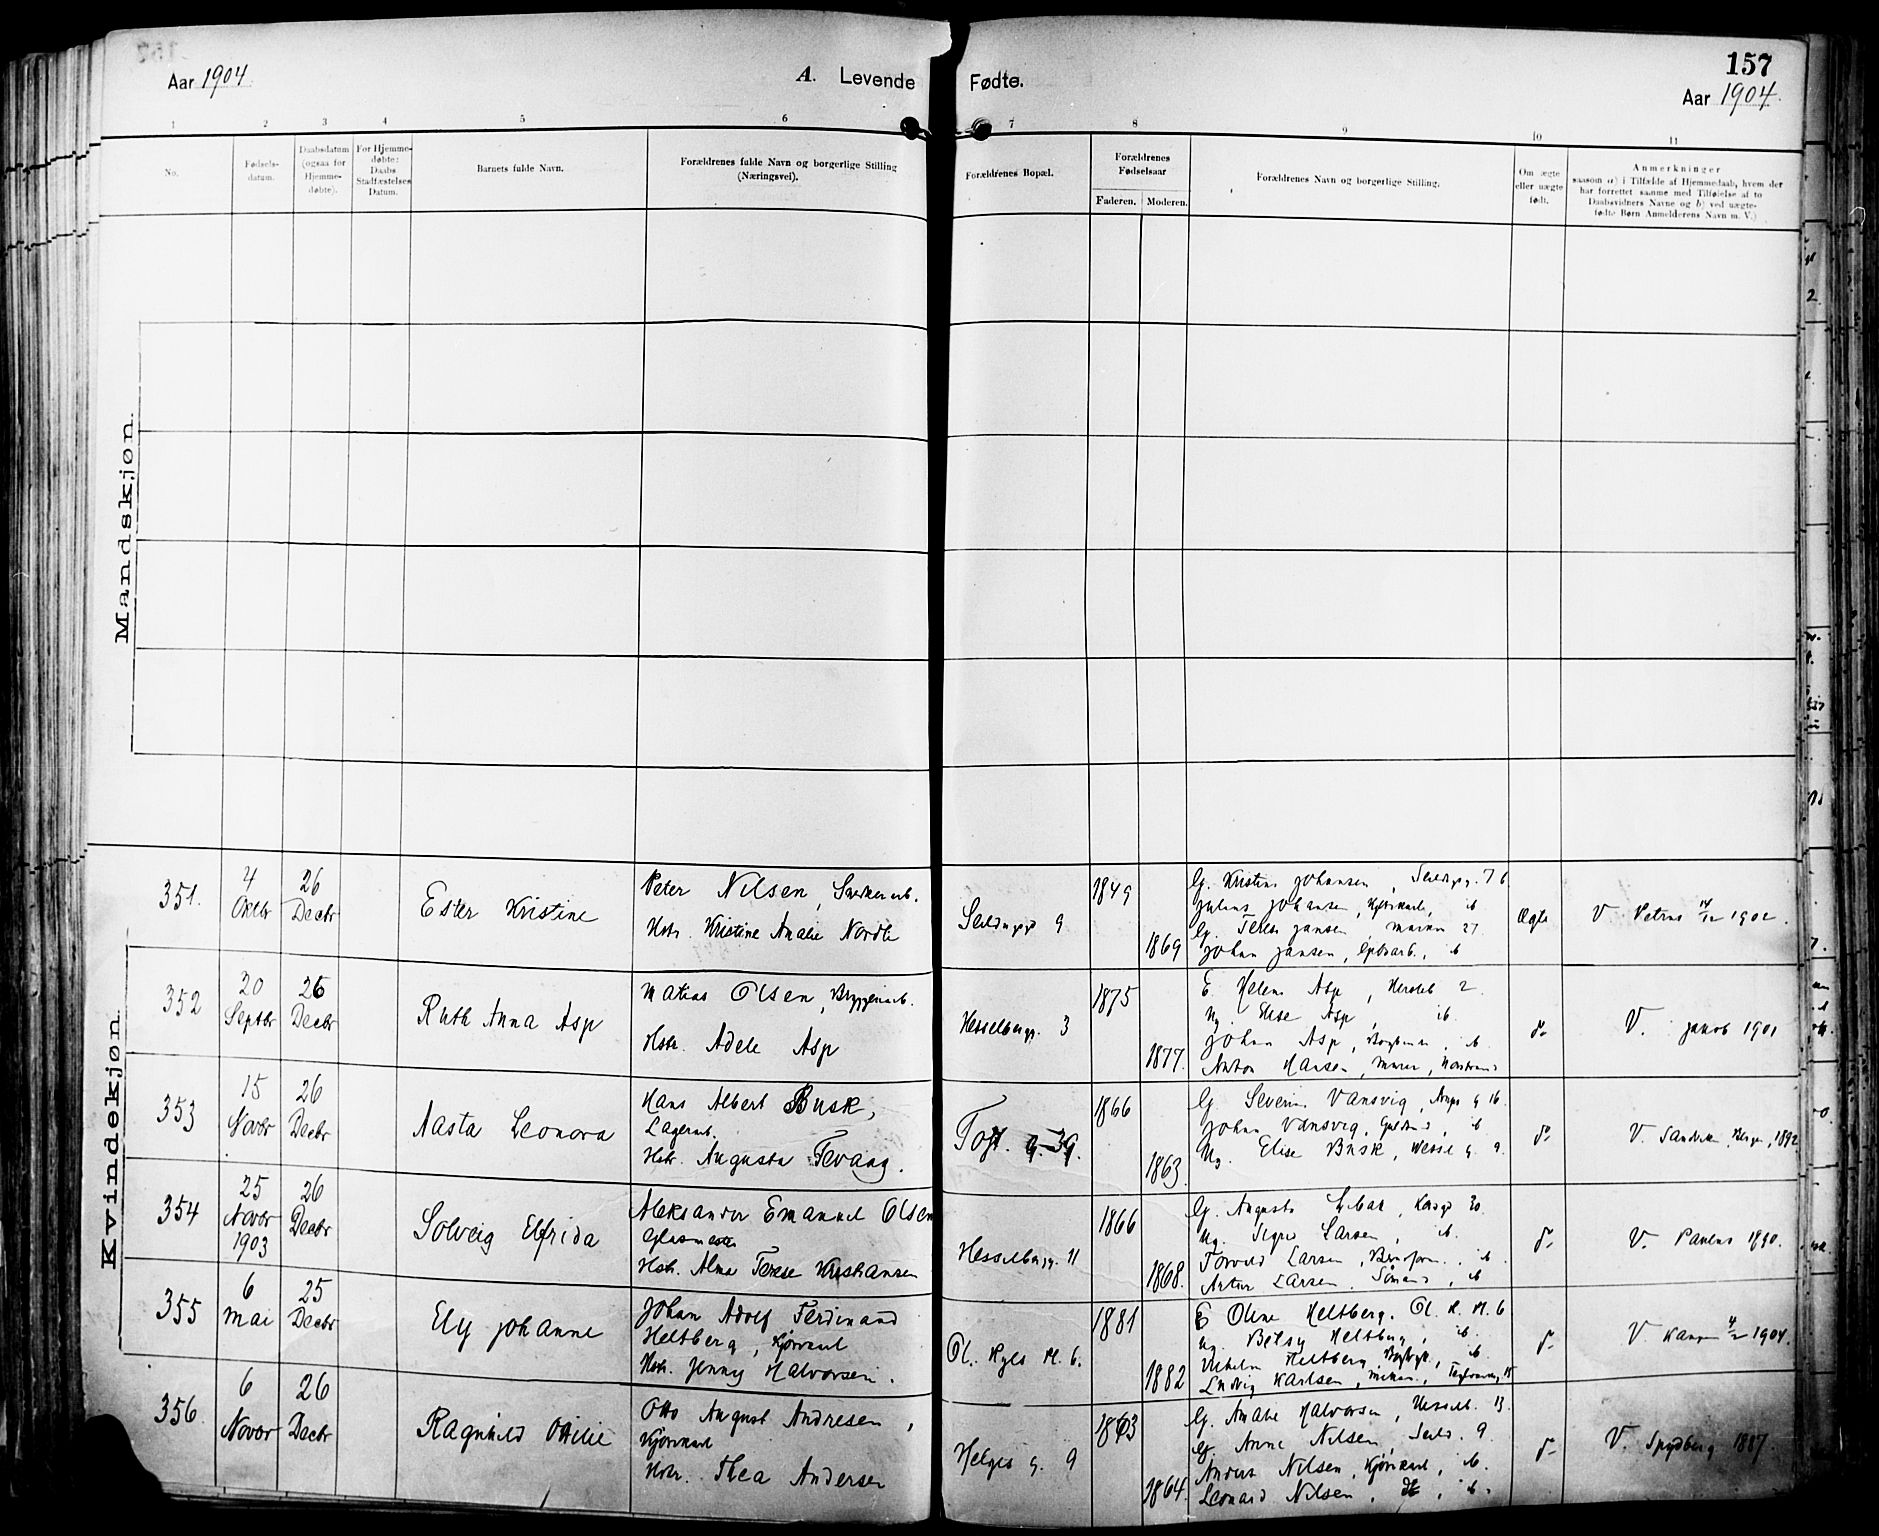 157
Aar 1904.
A. Levende Fødte.
Aar 1904.
1 2 3 4 5 6 7 8 9 10 11
No.
Fødsels-
datum.
Daabsdatum
(ogsaa for
Hjemme-
døbte).
For Hjemme-
døbte:
Daabs
Stadfæstelses
Datum.
Barnets fulde Navn.
Forældrenes fulde Navn og borgerlige Stilling
(Næringsvei).
Forældrenes Bopæl.
Forældrenes
Fødselsaar
Faderen. Moderen.
Forældrenes Navn og borgerlige Stilling.
Om ægte
eller uægte
født.
Anmerkninger
saasom a) i Tilfælde af Hjemmedaab, hvem der
har forrettet samme med Tilføielse af to
Daabsvidners Navne og b) ved uægte-
fødte Børn Anmelderens Navn m. V.)
Mandskjøn.
Kvindekjøn.
351.
4
Oktbr
26
Decbr
Ester Kristine
Peter Nilsen,
Hstr. Kristine Amalie
9
1849
1869
G. Kristine Johansen,
Julius Johansen, ib
G. Jansen, 27
Johan Jansen, ib
Ægte
V. Petrus 1902.
352
20
Septbr
26
Decbr
Ruth Anna Asp
Matias Olsen, Bryggeriarb.
Hstr. Adele Asp
Hesselbergg. 3
1875
1877.
E. Helene Asp, 2.
Ug. Else Asp, ib.
Johan Asp, ib.
Anton Hansen, Murer,
do
V. Jakob 1901
353
15
Novbr
26
Decbr
Aasta Leonora
Hans Albert Busk,
Lagerarb.
Hstr. Augusta Tevaag.
Toft. g. 39.
1866
1863.
G. Severine Vansvig, g 16.
Johan Vansvig, ib
Ug. Elise Busk, Wesse g. 9.
do
V. Bergen, 1892
354
25
Novbr
1903
26
Decbr
Solveig Elfrida
Aleksander Emanuel Olsen
Glasmester
Hstr. Alma Terese Kristiansen
Hesselbergg. 11
1866
1868.
G. Augusta 30.
Ug. Signe Larsen, ib.
Torvald Larsen, ib
Artur Larsen, Sømand, ib
do
V. Paulus 1890.
355
6
Mai
25
Decbr
Ely Johanne
Johan Adolf Ferdinand
Heltberg, Kjørekarl
Hstr. Jenny Halvorsen.
Ol. Ryes Pl. 6.
1881
1882
E Oline Heltberg. Ol. R. Pl. 6
Ug. Betsy Heltberg, ib.
Vilhelm Heltberg, ib.
Ludvig Karlsen, 15
do
V. 1904.
356.
6
Novbr
26
Decbr
Ragnhild Otilie
Otto August Andresen,
Kjørekarl
Hstr. Thea Andersen
Helges g. 9
1863
1864.
G. Amalie Halvorsen, Hesselb. 13.
G. Anne Nilsen, 9.
Anders Nilsen, Kjørekarl, ib.
Leonard Nilsen, do, ib.
do
V. Spydberg 1887.